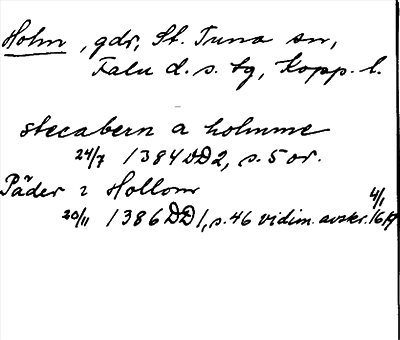 Holm, gdr, St. Tuna sn,
Falu d. s. tg, Kopp. l.
stecabern a holmme
24/7 1384 DD2, s. 5 or.
Päder i Hollom
20/11 1386 DD1, s. 46 vidim. avskr. 4/1